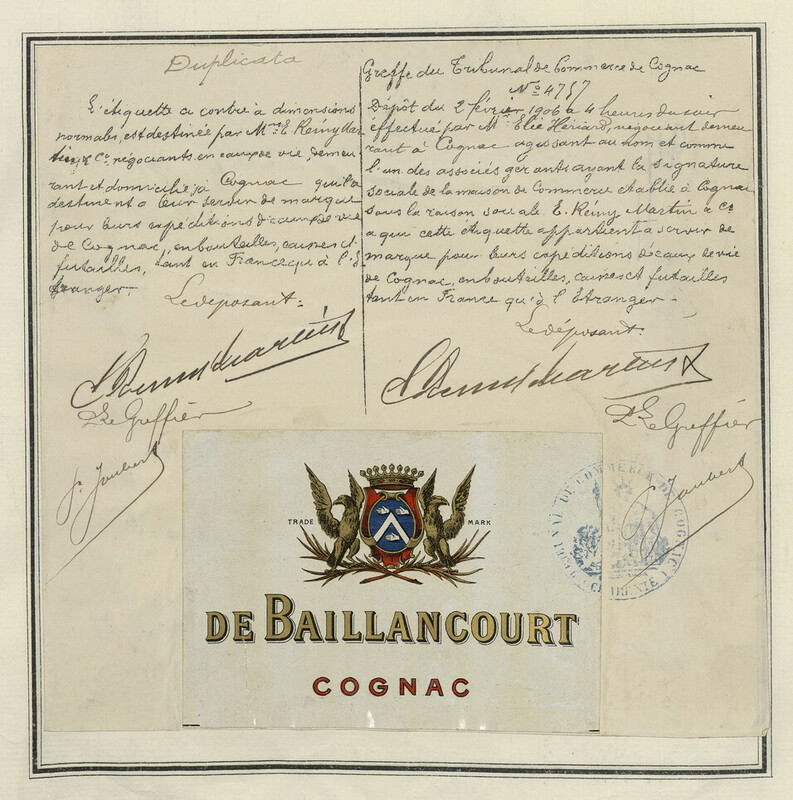 Duplicata
L'étiquette ci contre à dimensions
normales, est destinée par Mrs E. Rémy Mar
tin & Co négociants en eaux de vie, demeu
rant et domiciliés à Cognac qu'ils
destinent à leur servir de marque
pour leurs expéditions d'eaux de vie
de Cognac, en bouteilles, caisses et
futailles, tant en France qu'à l'E
tranger.
Le déposant:
E Remy Martin & Co
Le Greffier
Joubert
Greffe du Tribunal de Commerce de Cognac
No 4757
Dépôt du 2 février 1906 à 4 heures du soir
effectué par Mr Elie Hériard, négociant demeu
rant à Cognac agissant au nom et comme
l'un des associés gérants ayant la signature
sociale de la maison de Commerce établie à Cognac
sous la raison sociale E. Rémy Martin & Co
à qui cette étiquette appartient à servir de
marque pour leurs expéditions d'eaux de vie
de Cognac, en bouteilles, caisses et futailles
tant en France qu'à l'Etranger.
Le déposant:
E Remy Martin & Co
Le Greffier
Joubert
TRADE MARK
DE BAILLANCOURT
COGNAC
TRIBUNAL DE COMMERCE DE COGNAC
CHARENTE